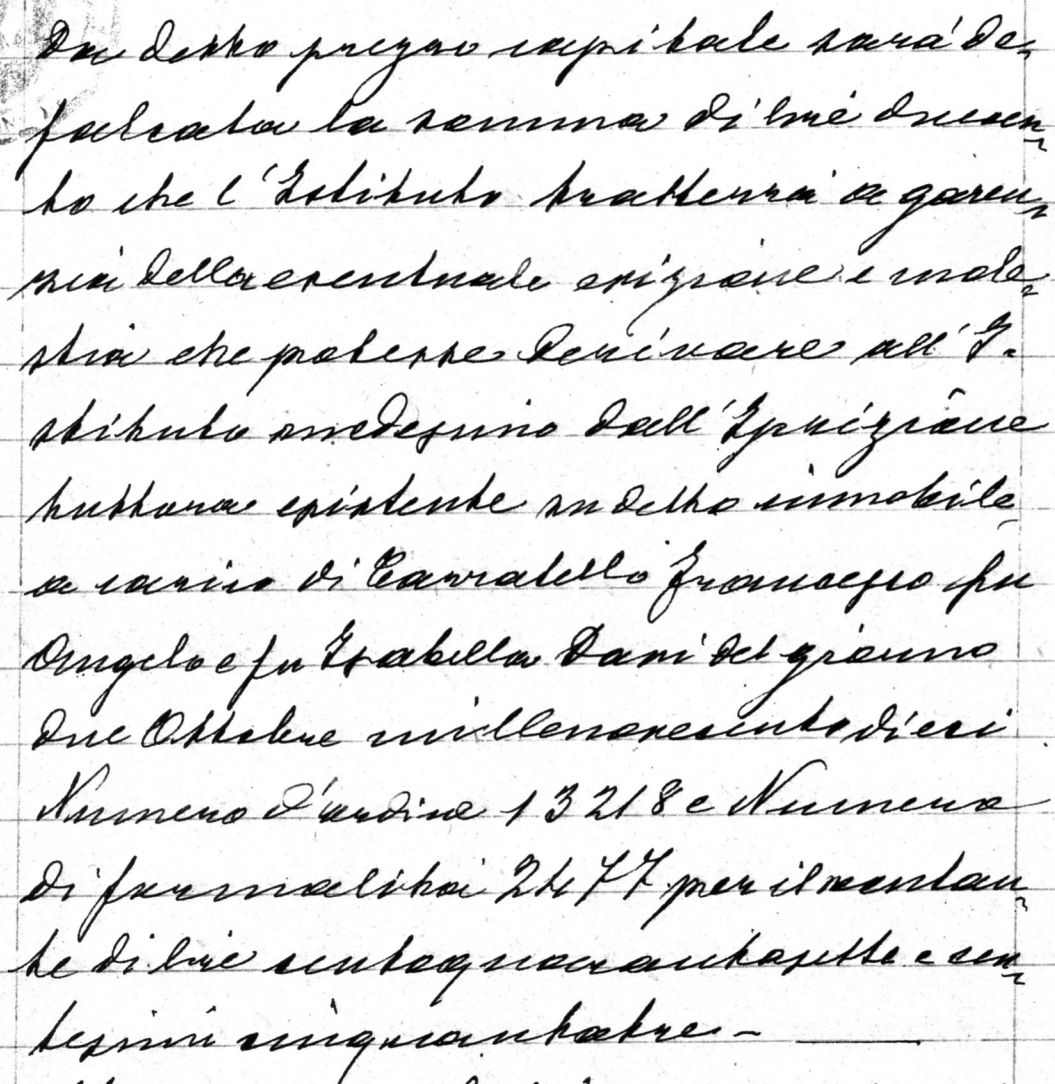 Da detto prezzo capitale sarà de-
falcata la somma di lire duecen-
to che l'Istituto tratterrà a garen-
zia della eventuale evizione e mole-
stia che potesse derivare all'I-
stituto medesimo dall'Iscrizione
tuttora esistente su detto immobile
a carico di Carratello Francesco fu
Angelo e fu Isabella Dani del giorno
due Ottobre millenovecentodieci
Numero d'ordine 13218 e Numero
di formalità 2477 per il montan-
te di lire centoquarantasette e cen-
tesimi cinquantatre. -